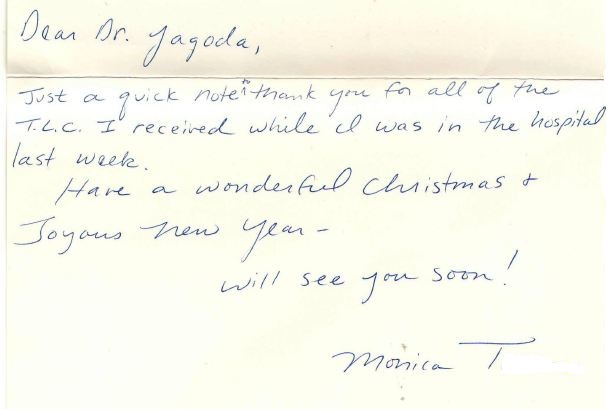 Dear Dr. Yagoda,
Just a quick note to thank you for all of the
T.L.C. I received while I was in the hospital
last week.
Have a wonderful Christmas &
Joyous New Year -
will see you soon!
Monica T